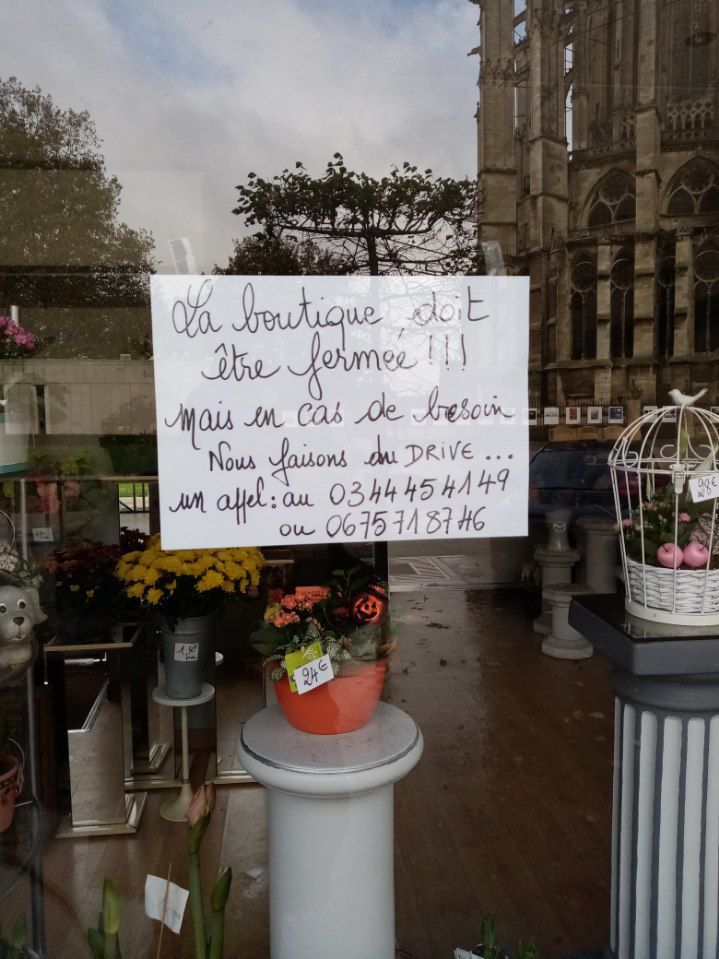 La boutique doit
être fermée !!!
Mais en cas de besoin
Nous faisons du DRIVE...
un appel : au 0344454149
ou 0675718746
28€
24€
1,50